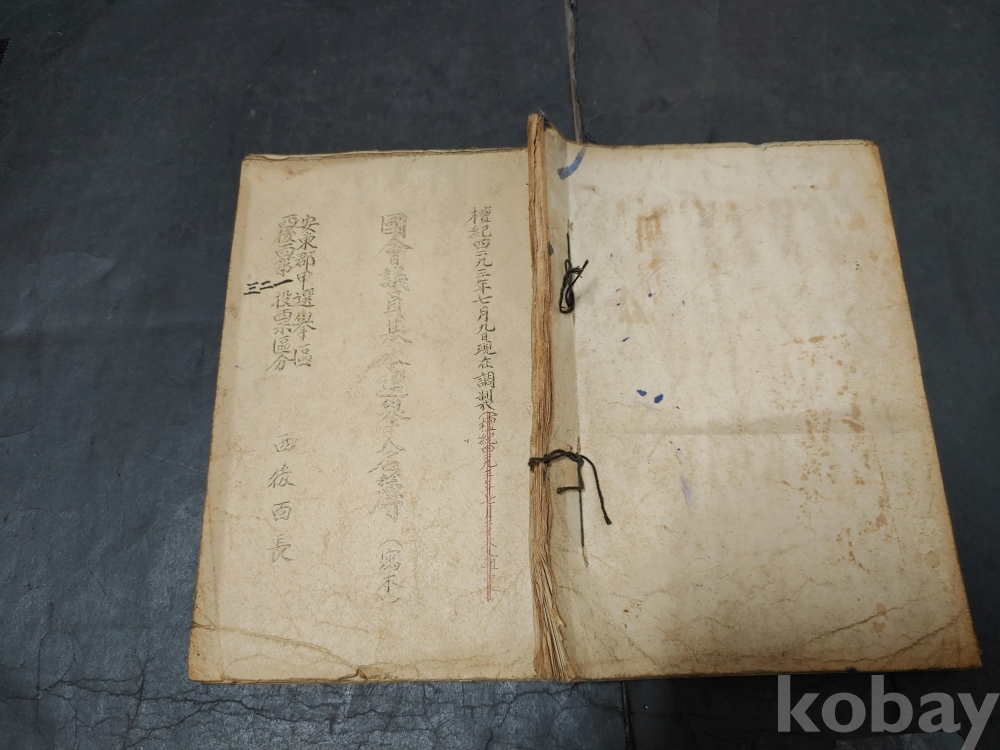 檀紀四二九三年七月九日現在調製
國會議員基本選擧人名簿(寫本)
安東郡甲選擧區
西後面第一二三投票區分
西後面長
kobay